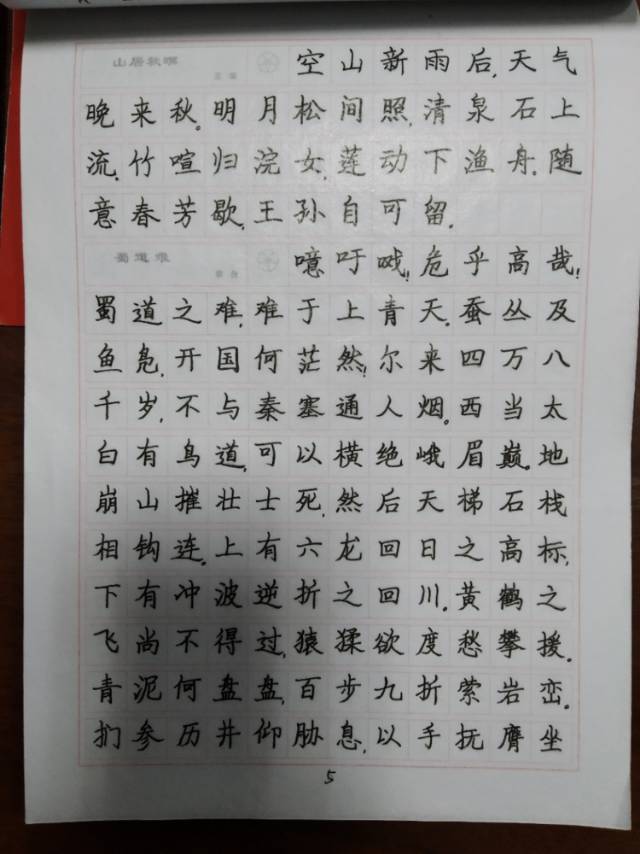 山居秋暝 空山新雨后,天气
王维
晚来秋。明月松间照,清泉石上
流。竹喧归浣女,莲动下渔舟。随
意春芳歇,王孙自可留。
蜀道难 噫吁嚱!危乎高哉!
李白
蜀道之难,难于上青天。蚕丛及
鱼凫,开国何茫然!尔来四万八
千岁,不与秦塞通人烟。西当太
白有鸟道,可以横绝峨眉巅。地
崩山摧壮士死,然后天梯石栈
相钩连。上有六龙回日之高标,
下有冲波逆折之回川。黄鹤之
飞尚不得过,猿猱欲度愁攀援。
青泥何盘盘,百步九折萦岩峦。
扪参历井仰胁息,以手抚膺坐
5